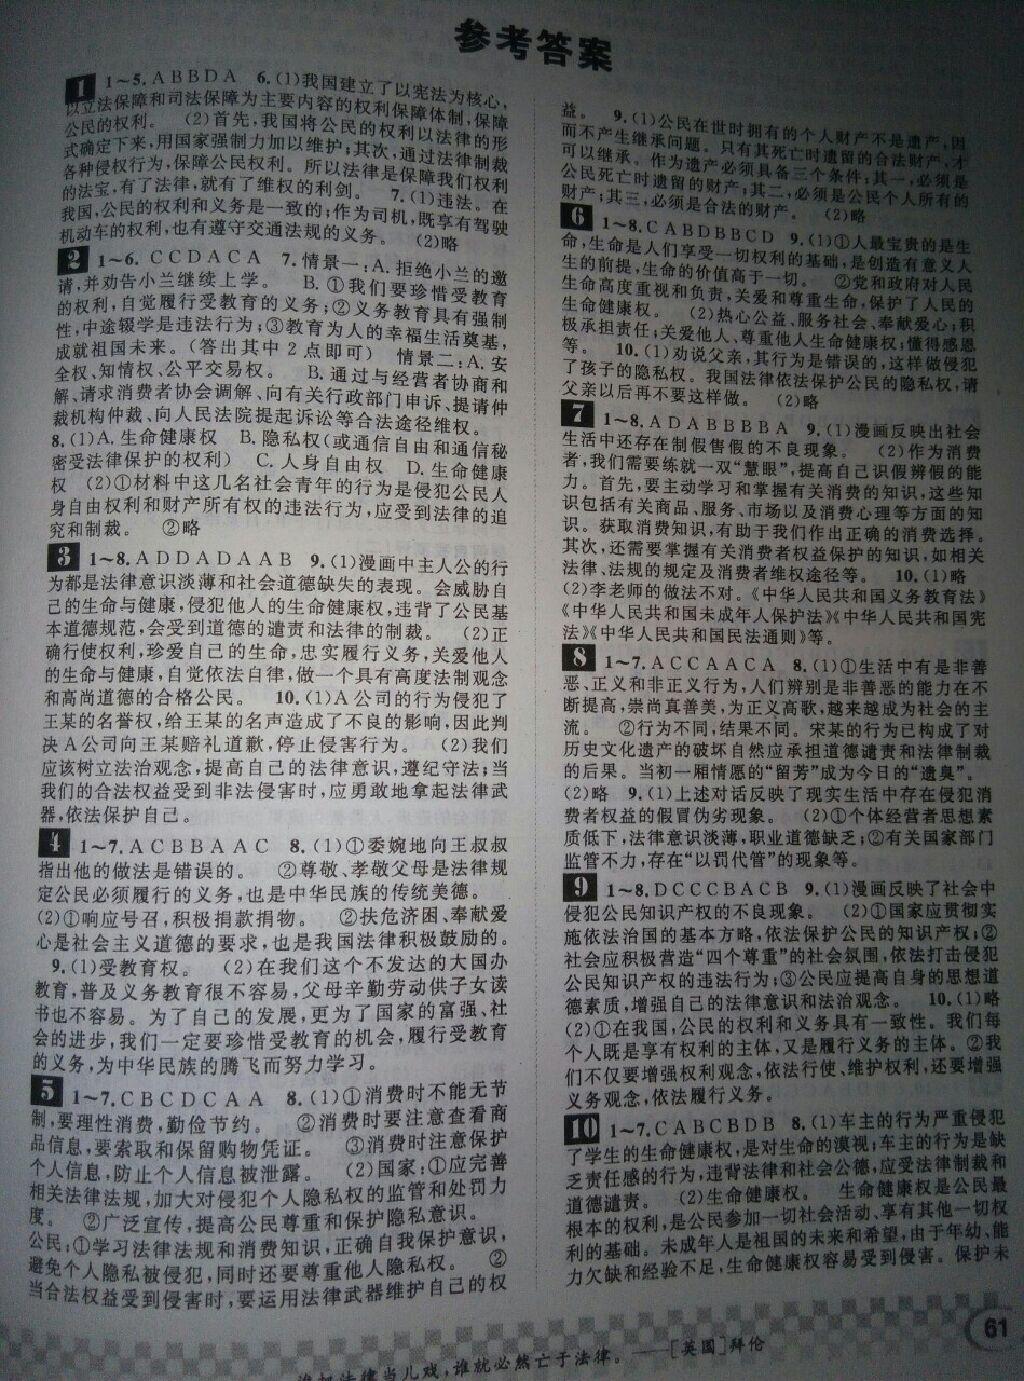 参考答案
1 1~5. A B B D A 6. (1)我国建立了以宪法为核心,
以立法保障和司法保障为主要内容的权利保障体制,保障
公民的权利。 (2)首先,我国将公民的权利以法律的形
式确定下来,用国家强制力加以维护;其次,通过法律制裁
各种侵权行为,保障公民权利。所以法律是保障我们权利
的法宝,有了法律,就有了维权的利剑。 7. (1)违法。在
我国,公民的权利和义务是一致的;作为司机,既享有驾驶
机动车的权利,也有遵守交通法规的义务。 (2)略
2 1~6. C C D A C A 7. 情景一:A. 拒绝小兰的邀
请,并劝告小兰继续上学。 B. ①我们要珍惜受教育
的权利,自觉履行受教育的义务;②义务教育具有强制
性,中途辍学是违法行为;③教育为人的幸福生活奠基,
成就祖国未来。(答出其中2点即可) 情景二:A. 安
全权、知情权、公平交易权。 B. 通过与经营者协商和
解、请求消费者协会调解、向有关行政部门申诉、提请仲
裁机构仲裁、向人民法院提起诉讼等合法途径维权。
8. (1)A. 生命健康权 B. 隐私权(或通信自由和通信秘
密受法律保护的权利) C. 人身自由权 D. 生命健康
权 (2)①材料中这几名社会青年的行为是侵犯公民人
身自由权利和财产所有权的违法行为,应受到法律的追
究和制裁。 ②略
3 1~8. A D D A D A A B 9. (1)漫画中主人公的行
为都是法律意识淡薄和社会道德缺失的表现。会威胁自
己的生命与健康,侵犯他人的生命健康权,违背了公民基
本道德规范,会受到道德的谴责和法律的制裁。 (2)正
确行使权利,珍爱自己的生命,忠实履行义务,关爱他人
的生命与健康,自觉依法自律,做一个具有高度法制观念
和高尚道德的合格公民。 10. (1)A公司的行为侵犯了
王某的名誉权,给王某的名声造成了不良的影响,因此判
决A公司向王某赔礼道歉,停止侵害行为。 (2)我们
应该树立法治观念,提高自己的法律意识,遵纪守法;当
我们的合法权益受到非法侵害时,应勇敢地拿起法律武
器,依法保护自己。
4 1~7. A C B B A A C 8. (1)①委婉地向王叔叔
指出他的做法是错误的。 ②尊敬、孝敬父母是法律规
定公民必须履行的义务,也是中华民族的传统美德。
(2)①响应号召,积极捐款捐物。 ②扶危济困、奉献爱
心是社会主义道德的要求,也是我国法律积极鼓励的。
9. (1)受教育权。 (2)在我们这个不发达的大国办
教育,普及义务教育很不容易,父母辛勤劳动供子女读
书也不容易。为了自己的发展,更为了国家的富强、社
会的进步,我们一定要珍惜受教育的机会,履行受教育
的义务,为中华民族的腾飞而努力学习。
5 1~7. C B C D C A A 8. (1)①消费时不能无节
制,要理性消费,勤俭节约。 ②消费时要注意查看商
品信息,要索取和保留购物凭证。 ③消费时注意保护
个人信息,防止个人信息被泄露。 (2)国家:①应完善
相关法律法规,加大对侵犯个人隐私权的监管和处罚力
度。 ②广泛宣传,提高公民尊重和保护隐私意识。
公民:①学习法律法规和消费知识,正确自我保护意识,
避免个人隐私被侵犯,同时还要尊重他人隐私权。 ②
当合法权益受到侵害时,要运用法律武器维护自己的权
益。 9. (1)公民在世时拥有的个人财产不是遗产,因
而不产生继承问题。只有其死亡时遗留的合法财产,才
可以继承。作为遗产必须具备三个条件:其一,必须是
公民死亡时遗留的财产;其二,必须是公民个人所有的
财产;其三,必须是合法的财产。 (2)略
6 1~8. C A B D B B C D 9. (1)①人最宝贵的是生
命,生命是人们享受一切权利的基础,是创造有意义人
生的前提,生命的价值高于一切。 ②党和政府对人民
生命高度重视和负责,关爱和尊重生命,保护了人民的
生命健康权。 (2)热心公益、服务社会、奉献爱心;积
极承担责任;关爱他人、尊重他人生命健康权;懂得感恩
等。 10. (1)劝说父亲,其行为是错误的,这样做侵犯
了孩子的隐私权。我国法律依法保护公民的隐私权,请
父亲以后再不要这样做。 (2)略
7 1~8. A D A B B B B A 9. (1)漫画反映出社会
生活中还存在制假售假的不良现象。 (2)作为消费
者,我们需要练就一双“慧眼”,提高自己识假辨假的能
力。首先,要主动学习和掌握有关消费的知识,这些知
识包括有关商品、服务、市场以及消费心理等方面的知
识。获取消费知识,有助于我们作出正确的消费选择。
其次,还需要掌握有关消费者权益保护的知识,如相关
法律、法规的规定及消费者维权途径等。 10. (1)略
(2)李老师的做法不对。《中华人民共和国义务教育法》
《中华人民共和国未成年人保护法》《中华人民共和国宪
法》《中华人民共和国民法通则》等。
8 1~7. A C C A A C A 8. (1)①生活中有是非善
恶、正义和非正义行为,人们辨别是非善恶的能力在不
断提高,崇尚真善美,为正义高歌,越来越成为社会的主
流。 ②行为不同,结果不同。宋某的行为已构成了对
历史文化遗产的破坏自然应承担道德谴责和法律制裁
的后果。当初一厢情愿的“留芳”成为今日的“遗臭”。
(2)略 9. (1)上述对话反映了现实生活中存在侵犯消
费者权益的假冒伪劣现象。 (2)①个体经营者思想素
质低下,法律意识淡薄,职业道德缺乏;②有关国家部门
监管不力,存在“以罚代管”的现象等。
9 1~8. D C C C B A C B 9. (1)漫画反映了社会中
侵犯公民知识产权的不良现象。 (2)①国家应贯彻实
施依法治国的基本方略,依法保护公民的知识产权;②
社会应积极营造“四个尊重”的社会氛围,依法打击侵犯
公民知识产权的违法行为;③公民应提高自身的思想道
德素质,增强自己的法律意识和法治观念。 10. (1)略
(2)①在我国,公民的权利和义务具有一致性。我们每
个人既是享有权利的主体,又是履行义务的主体。②我
们不仅要增强权利观念,依法行使、维护权利,还要增强
义务观念,依法履行义务。
10 1~7. C A B C B D B 8. (1)车主的行为严重侵犯
了学生的生命健康权,是对生命的漠视;车主的行为是缺
乏责任感的行为,违背法律和社会公德,应受法律制裁和
道德谴责。 (2)生命健康权。 生命健康权是公民最
根本的权利,是公民参加一切社会活动、享有其他一切权
利的基础。未成年人是祖国的未来和希望,由于年幼、能
力欠缺和经验不足,生命健康权容易受到侵害。保护未
61
法律当儿戏,谁就必然亡于法律。——[英国]拜伦